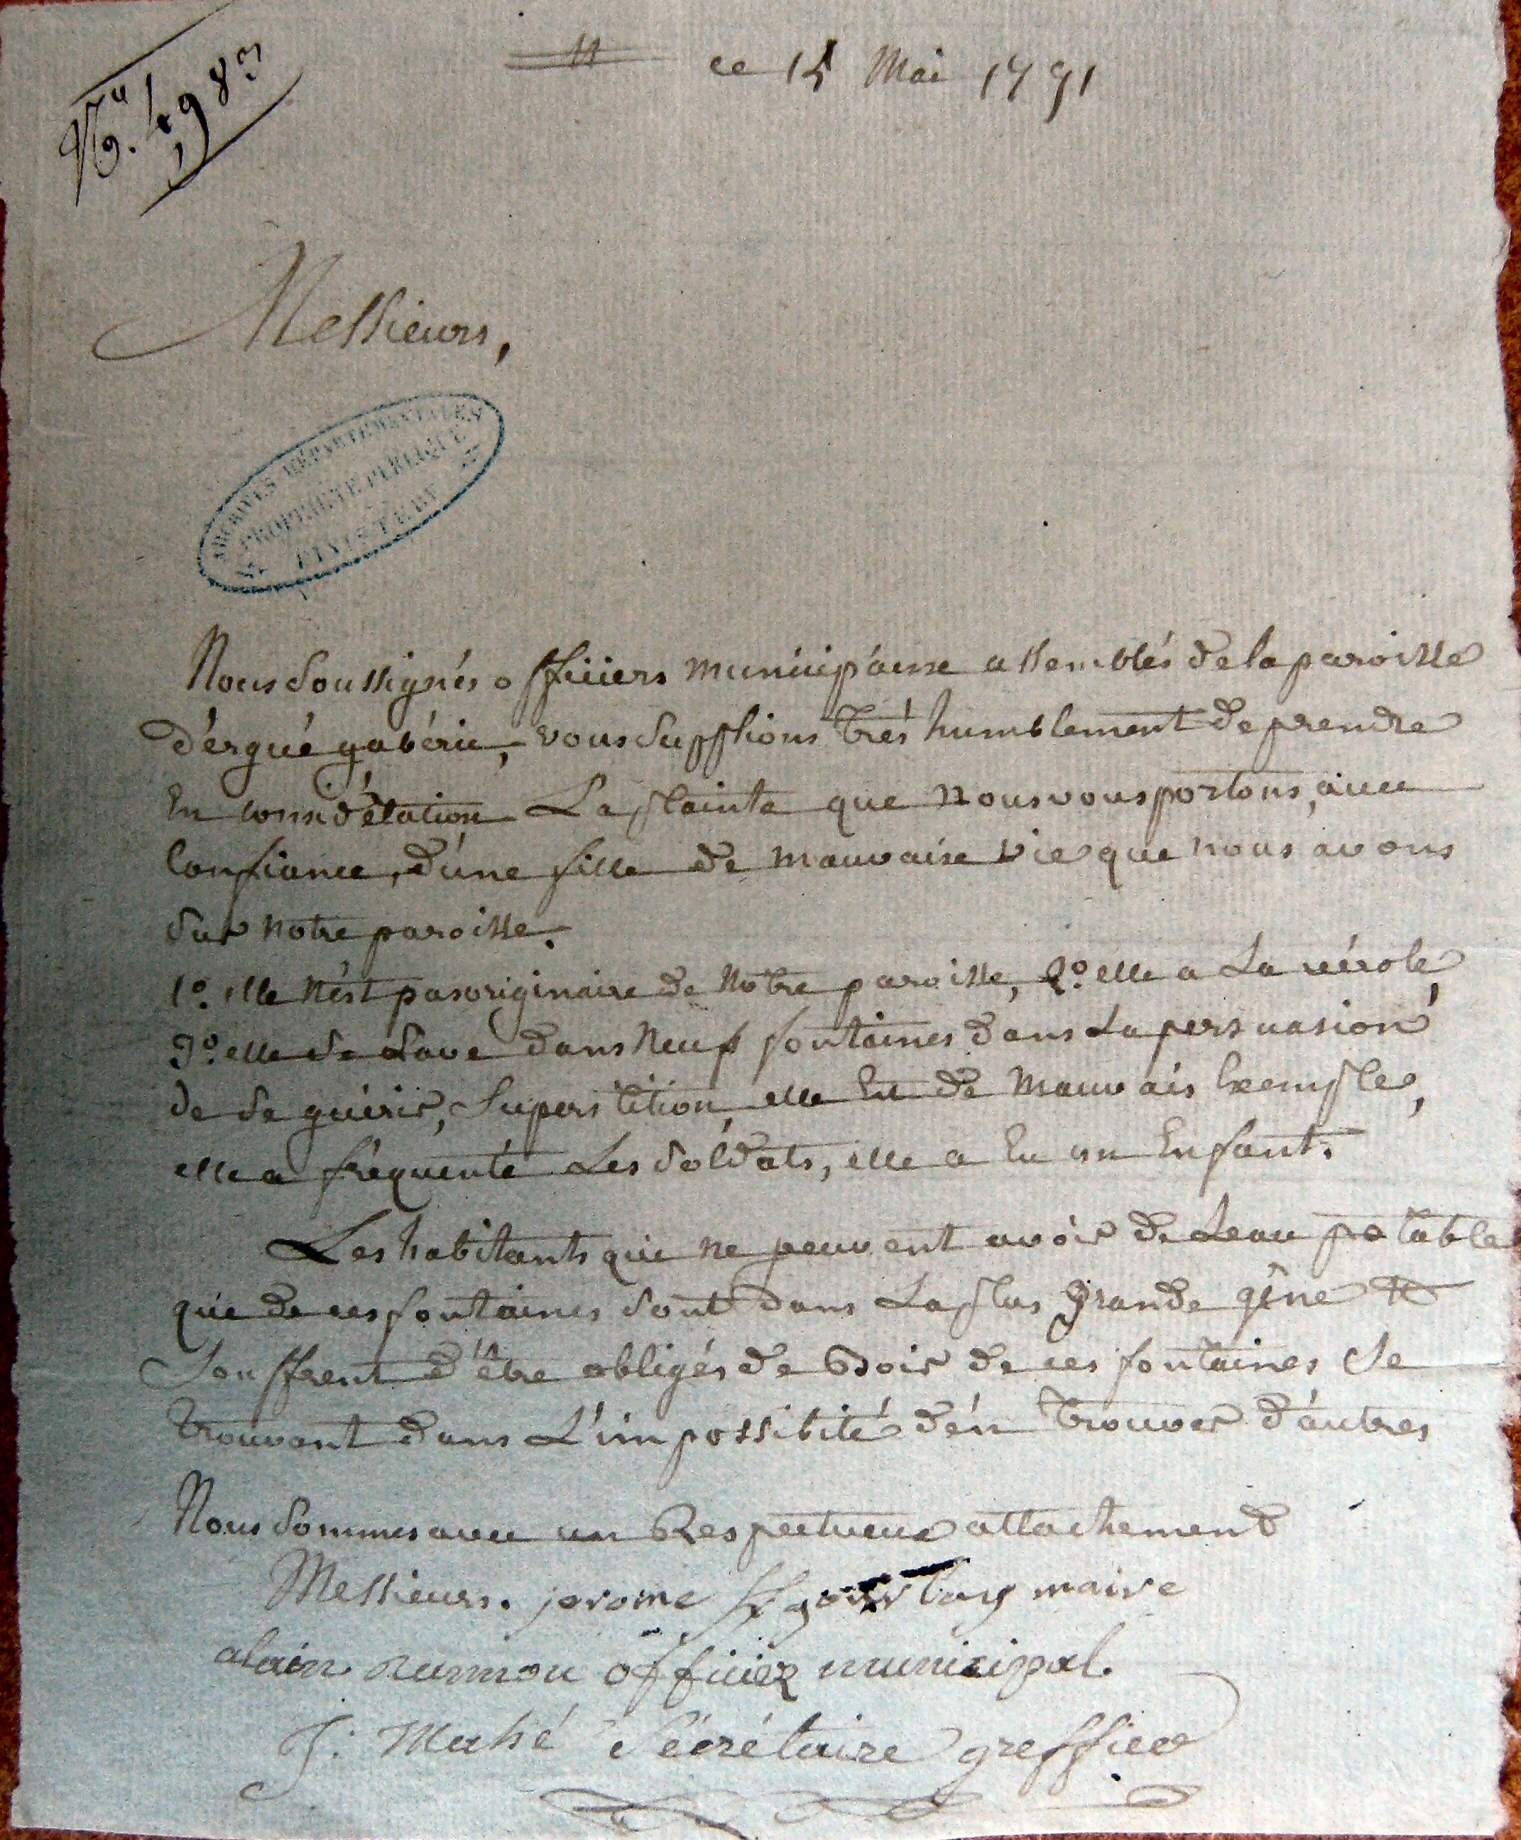 No. 4983
11 ce 15 Mai 1791
Messieurs,
ARCHIVES DÉPARTEMENTALES
PROPRIÉTÉ PUBLIQUE
FINISTERE
Nous soussignés officiers municipáuxe assemblés de la paroisse
d'érgué gabéric, vous supplions trés humblement de prendre
En considération La plainte que nous vous portons, avec
Confiance, d'úne fille de mauvaise vie que nous avons
sur notre paroisse.
1o. elle n'ést pas originaire de notre paroisse, 2o. elle a La vérole,
3o. elle se Lave dans neuf fontaines dans La persuasion
de se guérir, superstition, elle Est de mauvais Exemple,
elle a fréquenté Les soldats, elle a Eu un Enfant.
Les habitants qui ne peuvent avoir de Leau potable
que de ces fontaines sont dans La plus grande gêne et
souffrent d'être obligés de Boir de ces fontaines se
trouvant dans L'impossibité d'én trouver d'áutres
Nous sommes avec un Respectueux attachement
Messieurs. jerome gourlay maire
alain nunmou officier municipal.
J: Mahé Sécrétaire greffier